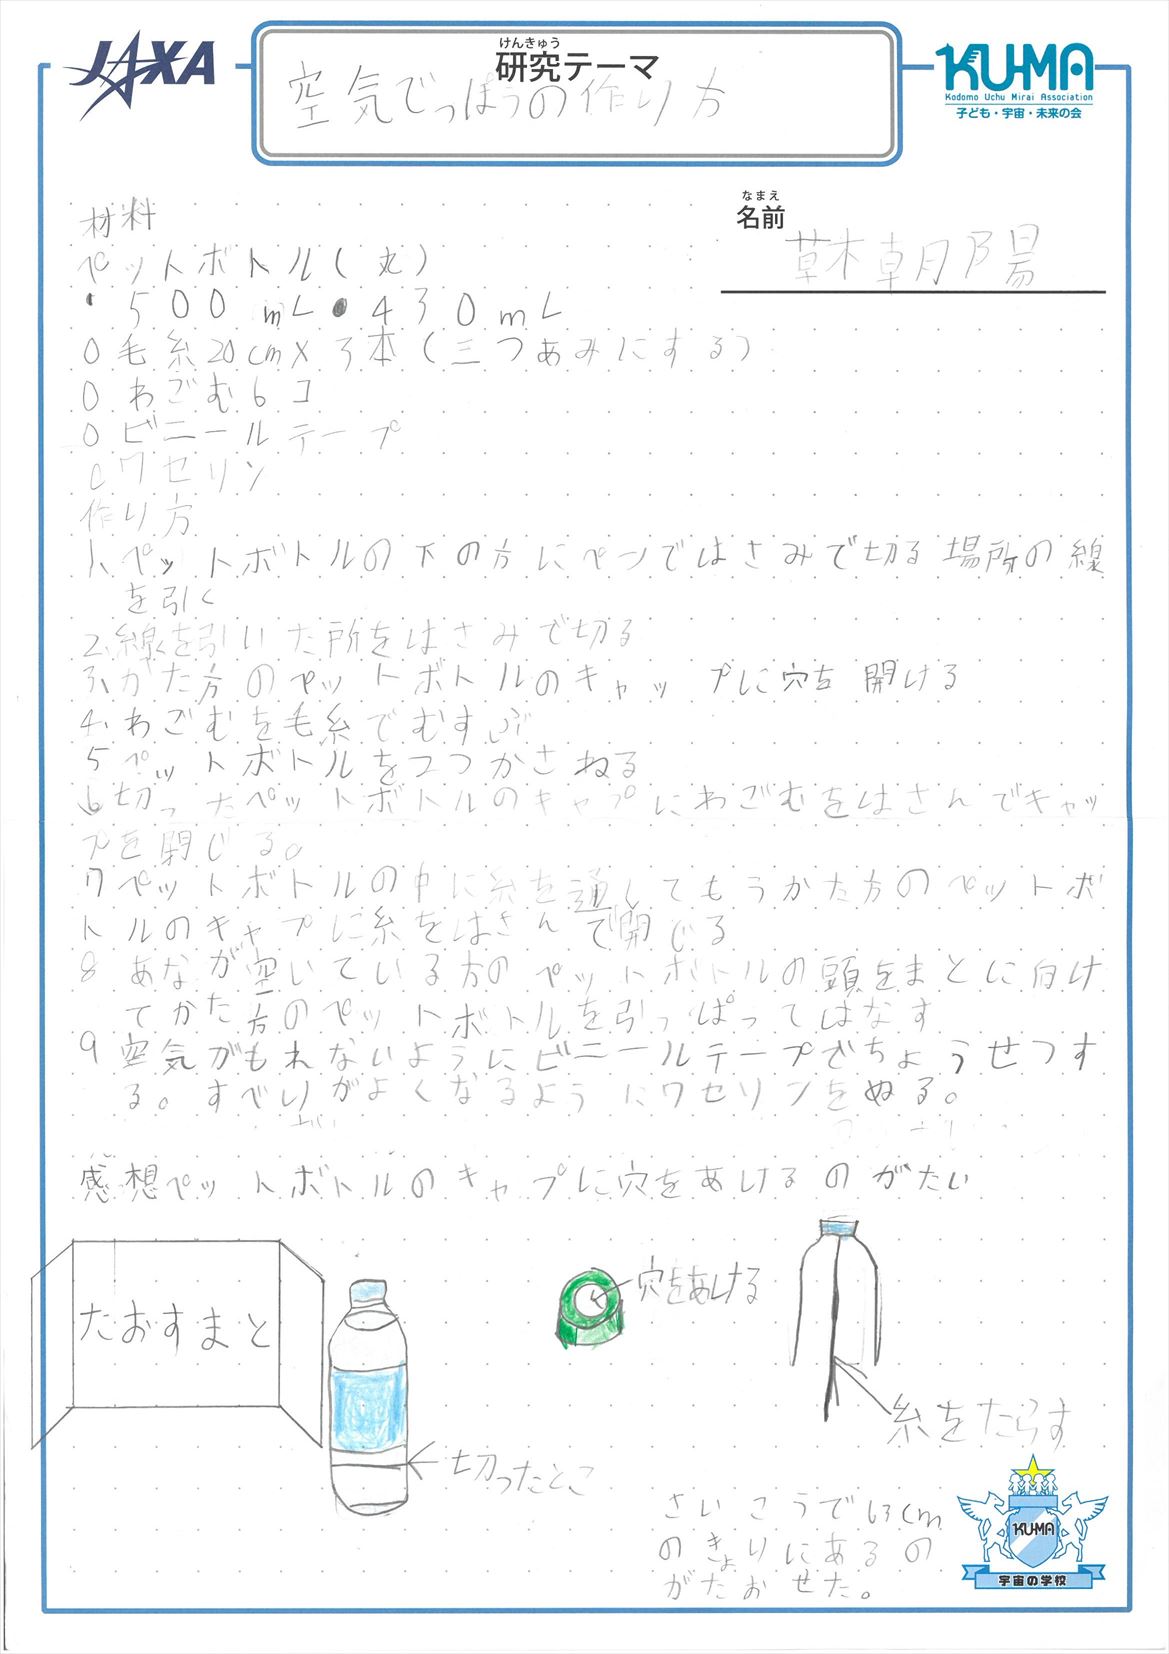 JAXA
けんきゅう
研究テーマ
KU-MA
Kodomo Uchu Mirai Association
子ども・宇宙・未来の会
空気でっぽうの作り方
なまえ
名前
草木朝陽
材料
ペットボトル(丸)
・500mL●430mL
0毛糸20cm×3本(三つあみにする)
0わごむ6コ
0ビニールテープ
0ワセリン
作り方
1、ペットボトルの下の方にペンではさみで切る場所の線
を引く
2、線を引いた所をはさみで切る
3、かた方のペットボトルのキャップに穴を開ける
4、わごむを毛糸でむすぶ
5ペットボトルを2つかさねる
6切ったペットボトルのキャプにわごむをはさんでキャッ
プを閉じる。
7ペットボトルの中に糸を通してもうかた方のペットボ
トルのキャプに糸をはさんで閉じる
8あなが空いている方のペットボトルの頭をまとに向け
てかた方のペットボトルを引っぱってはなす
9空気がもれないようにビニールテープでちょうせつす
る。すべりがよくなるようにワセリンをぬる。
感想ペットボトルのキャプに穴をあけるのがたい
たおすまと
穴をあける
切ったとこ
糸をたらす
さいこうで163cm
のきょりにあるの
がたおせた。
KU-MA
宇宙の学校